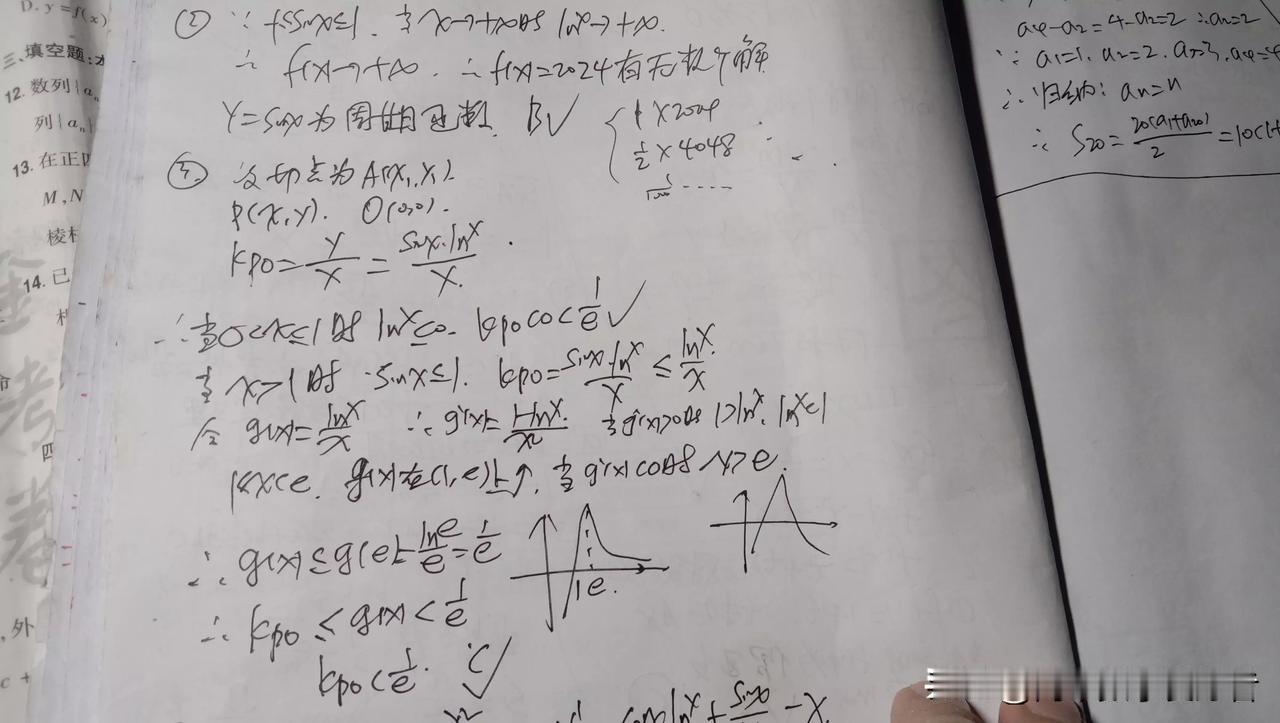 D. y=f(x)
三、填空题:本
12. 数列{aₙ
列{aₙ}
13. 在正四
M,N
棱柱
14. 已
金考卷
四
外
c+
② ∵ -1≤sinx≤1. 当x→+∞时 lnx→+∞.
∴ f(x)→+∞. ∴ f(x)=2024有无数个解
y=sinx为周期函数. B✓
{ 1×2024
½×4048
1/1000 ……
设切点为A(x₁,y₁).
P(x,y). O(0,0).
kpo=y/x=sinx·lnx/x.
∴当0<x≤1时 lnx≤0. kpo≤0<1/e ✓
当x>1时 -sinx≤1. kpo=sinx·lnx/x≤lnx/x.
令g(x)=lnx/x ∴g'(x)=1-lnx/x² 当g'(x)>0时 1>lnx. lnx<1
1<x<e. g(x)在(1,e)上↑. 当g'(x)<0时 x>e.
∴g(x)≤g(e)=lne/e=1/e
1 e.
∴kpo≤g(x)<1/e
kpo<1/e. C✓
lnx+sinx/ -x.
a₄-a₂=4-a₂=2 ∴a₂=2
∵a₁=1. a₂=2. a₃=3. a₄=4
∴归纳: aₙ=n
∴S₂₀=20(a₁+a₂₀)/2=10(1+